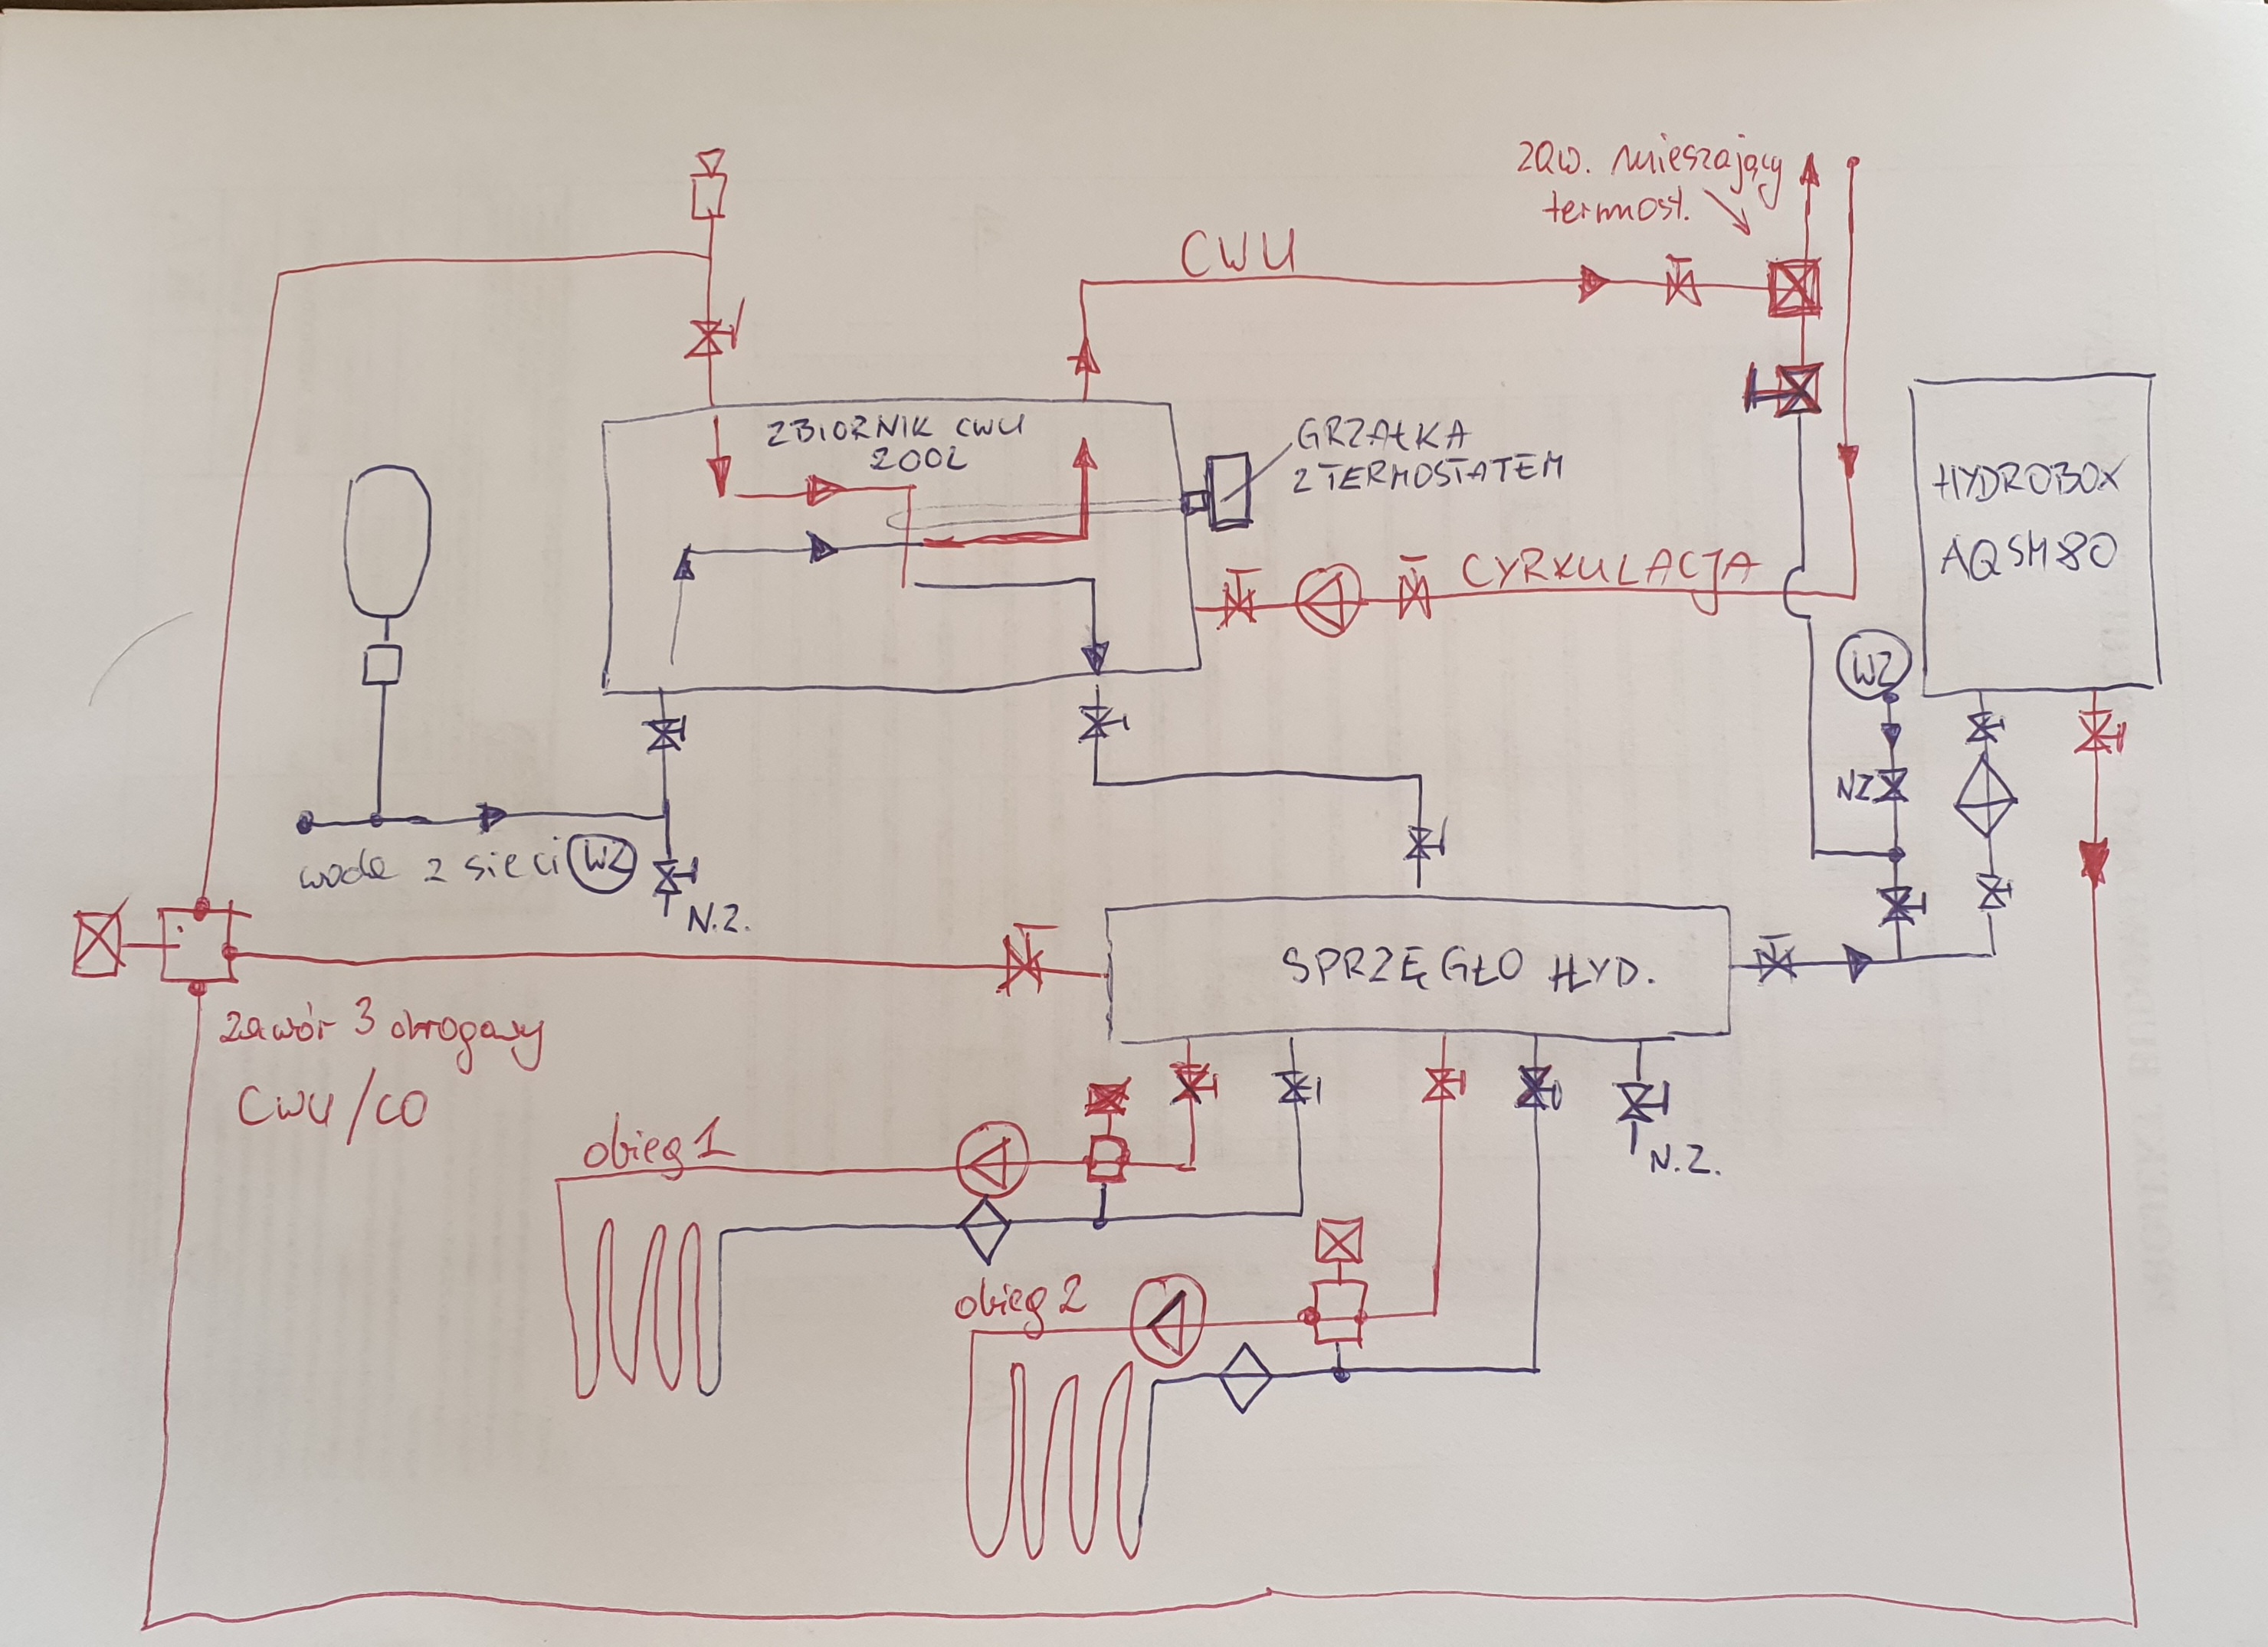 zaw. mieszający
termost.
CWU
ZBIORNIK CWU
200L
GRZAŁKA
Z TERMOSTATEM
HYDROBOX
AQSM80
CYRKULACJA
WZ
NZ
woda z sieci WZ
N.Z.
SPRZĘGŁO HYD.
zawór 3 drogowy
CWU/CO
obieg 1
N.Z.
obieg 2